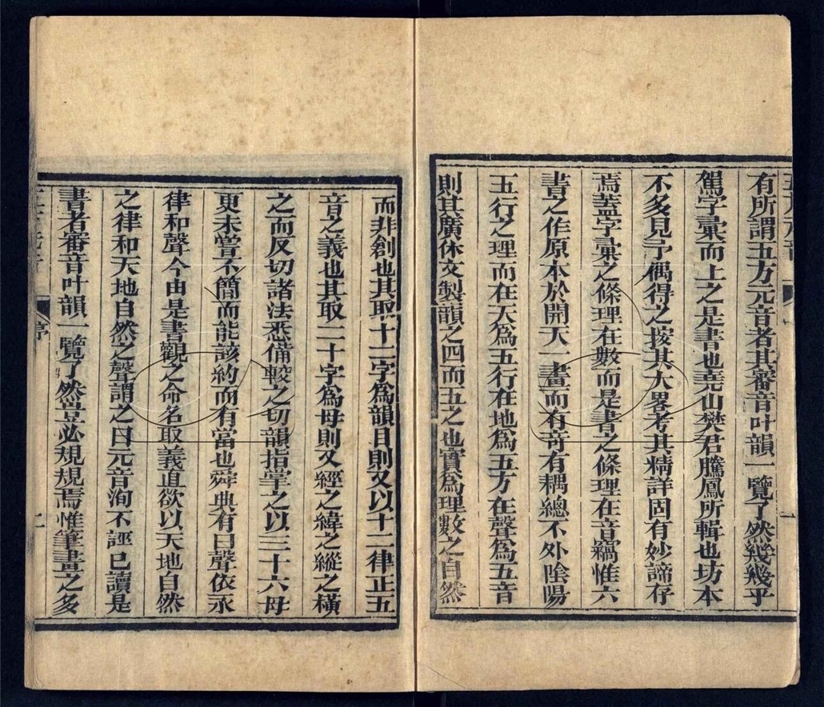 有所謂五方元音者其審音叶韻一覽了然幾幾乎
駕字彙而上之是書也堯山樊君騰鳳所輯也坊本
不多見予偶得之按其大畧考其精詳固有妙諦存
焉蓋字彙之條理在數而是書之條理在音竊惟六
書之作原本於開天一畫而有奇有耦總不外陰陽
五行之理而在天爲五行在地爲五方在聲爲五音
則其廣休文製韻之四而五之也實爲理數之自然
而非創也其取十二字爲韻目則又以十二律正五
音之義也其取二十字爲母則又經之緯之縱之橫
之而反切諸法悉備較之切韻指掌之以三十六母
更未嘗不簡而能該約而有當也舜典有曰聲依永
律和聲今由是書觀之命名取義直欲以天地自然
之律和天地自然之聲謂之曰元音洵不誣已讀是
書者審音叶韻一覽了然豈必規規焉惟筆畫之多
序